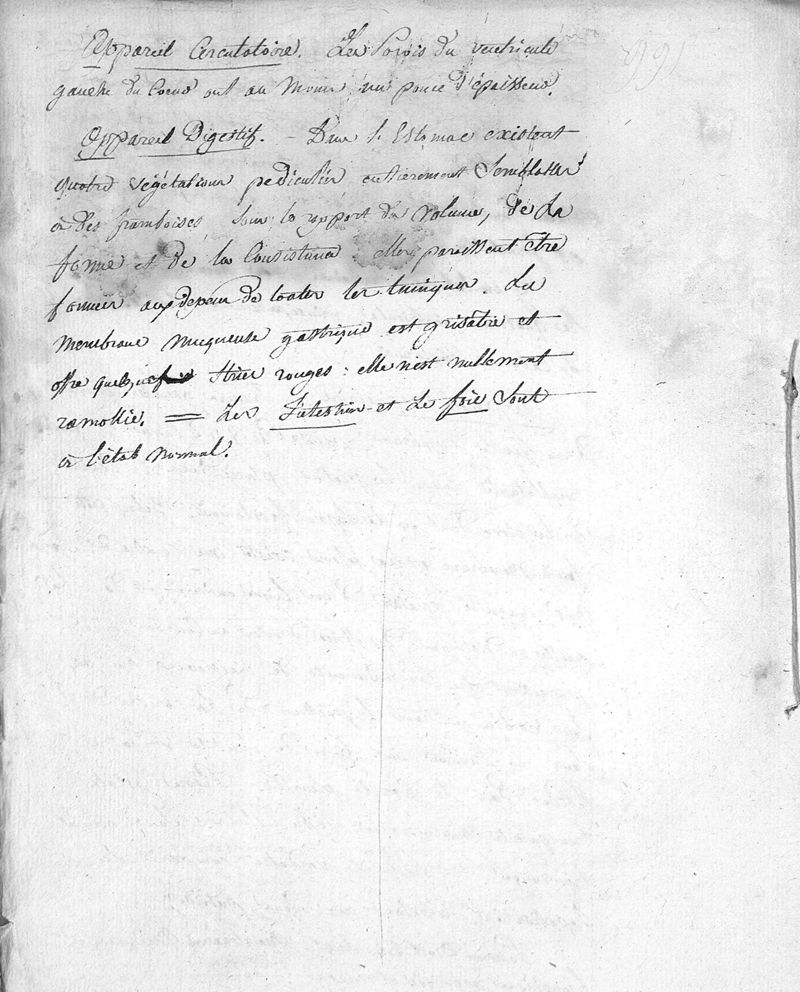 Appareil Circulatoire. Les Parois du ventricule
gauche du Coeur ont au Moins un pouce d'épaisseur.
Appareil Digestif. - Dans l'Estomac existent
quatre végétations pediculées entièrement Semblables
à des framboises, sous le rapport du volume, de la
forme et de la Consistance. elles paraissent être
formées aux depens de toutes les tuniques. La
membrane muqueuse gastrique est grisâtre et
offre quelques stries rouges : elle n'est nullement
ramollie. = Les Intestins et Le foie sont
à l'état normal.